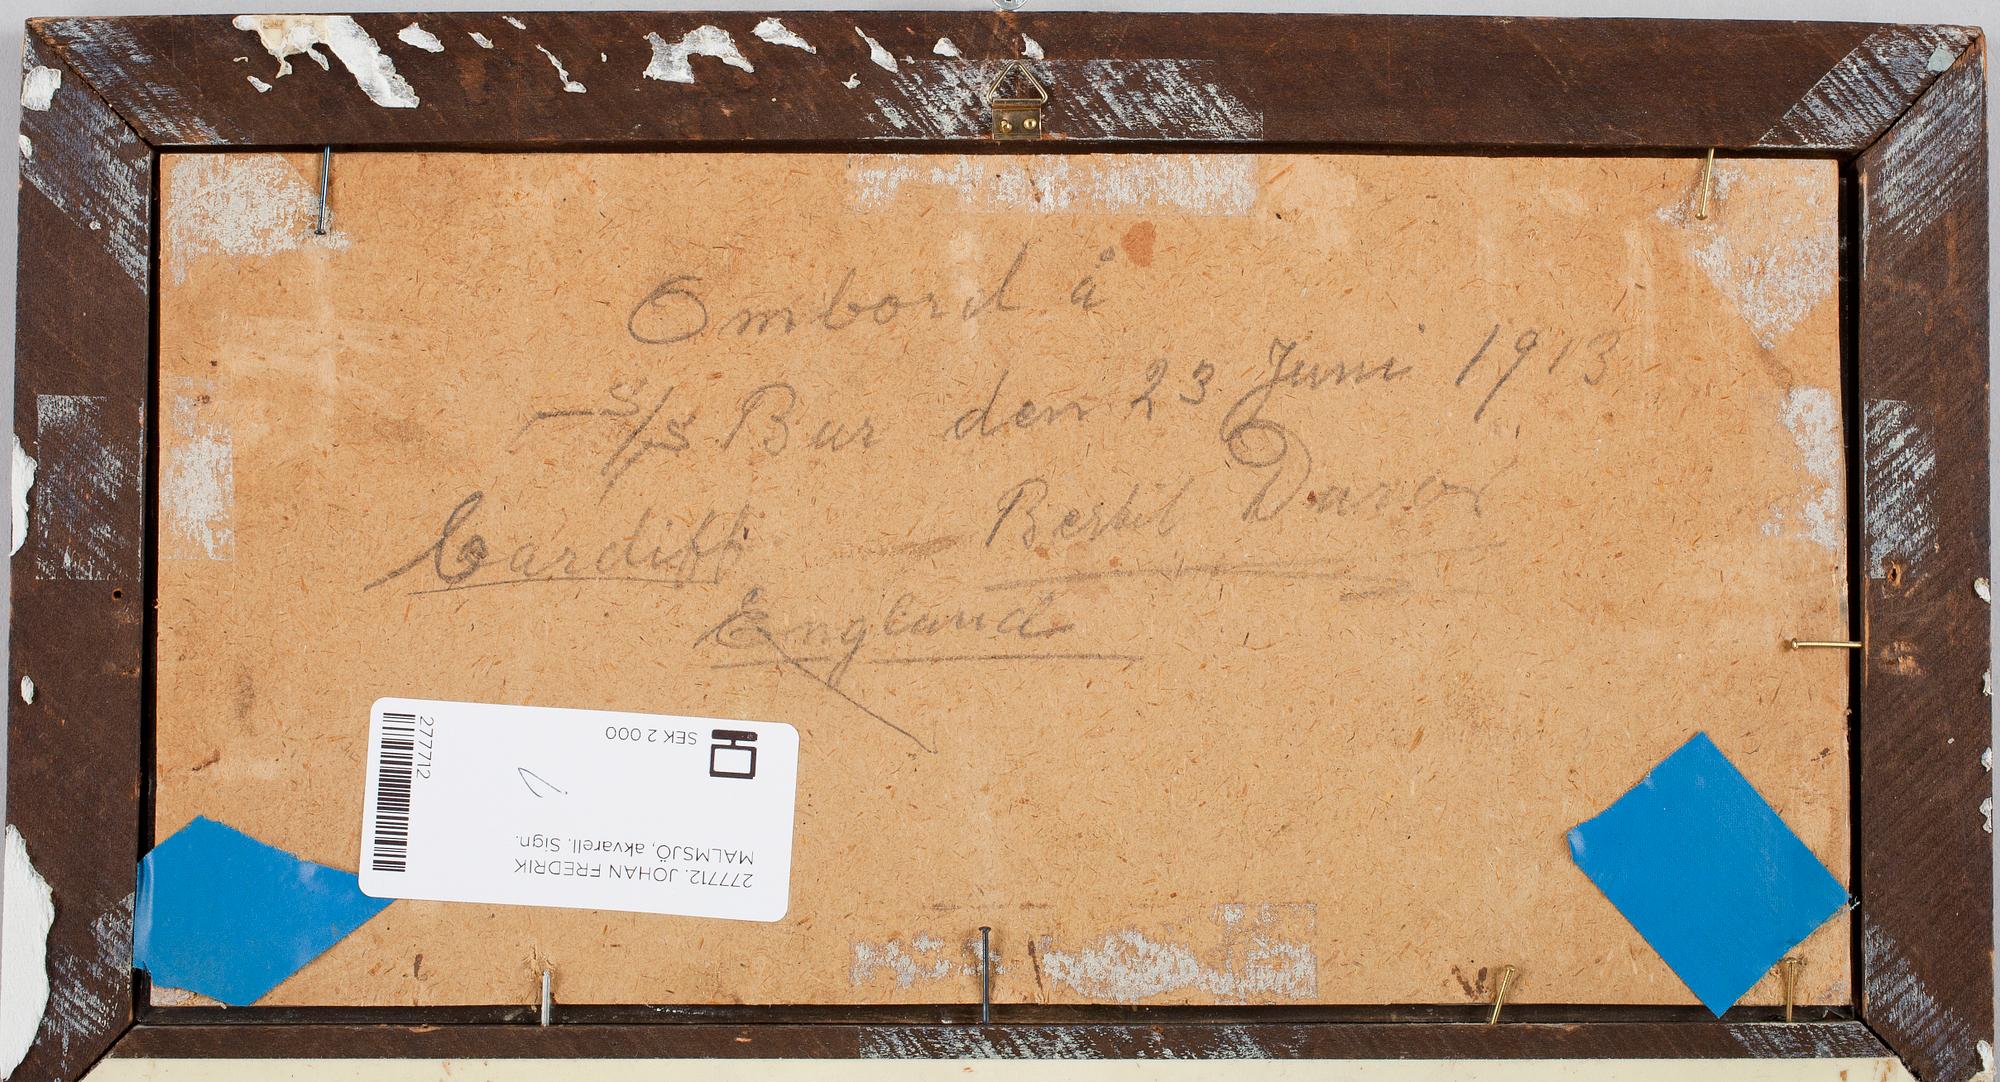 Ombord å
S/S Bur den 23 Juni 1913
Cardiff — Bertil
England
277712. JOHAN FREDRIK
MALMSJÖ, akvarell. Sign.
SEK 2 000
277712